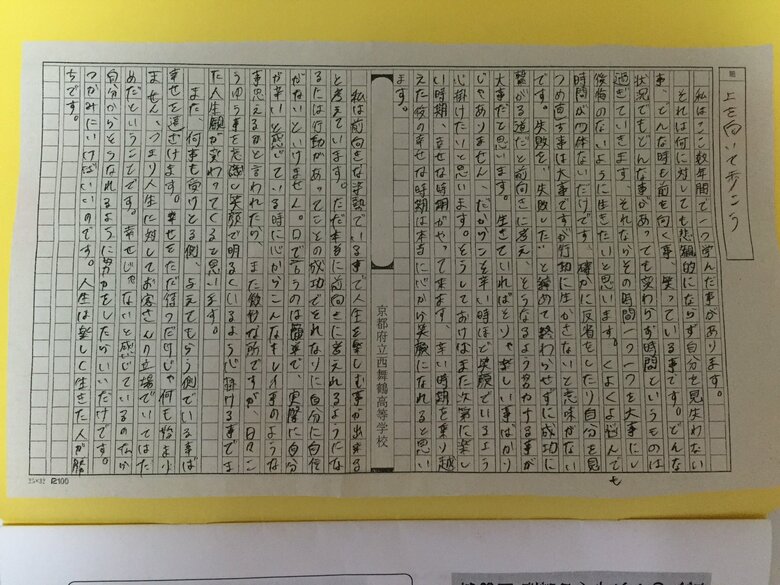 題
上を向いて歩こう
私はここ数年間で一つ学んだ事があります。
それは何に対しても悲観的にならず自分を見失わない
事、どんな時も前を向く事、笑っている事です。どんな
状況でもどんな事があっても変わらず時間というものは
過ぎていきます、それならその時間一つ一つを大事にし
後悔のないように生きたいと思います。くよくよ悩んでも
時間が勿体ないだけです、確かに反省をしたり自分を見
つめ直す事は大事ですが行動に生かさないと意味がない
です。失敗を、失敗した"と締めて終わらせずに成功に
繋がる道だと前向きに考え、そうなるよう努力する事が
大事だと思います。生きていればそりゃ楽しい事ばかり
じゃありません、だからこそ辛い時ほど笑顔でいるよう
心掛けたいと思います。そうしておけばまた次第に楽し
い時期、幸せな時期がやって来ます、辛い時期を乗り越
えた後の幸せな時期は本当に心から笑顔になれると思い
ます。
京都府立西舞鶴高等学校
私は前向きな姿勢でいる事で人生を楽しむ事が出来る
と考えています。ただ本当に前向きに考えれるようにな
るには行動があってことの成功でそれなりに自分に自信
がないといけません。口で言うのは簡単で、実際に自分
が辛いと感じている時に心からこんなもしん事のような
事思えるかと言われたら、また微妙な所ですが、日々こ
うゆう事を意識し笑顔で明るくいるよう心掛ける事でま
た人生観が変わってくると思います。
また、何事も受けとる側、与えてもらう側でいる事ば
幸せを遠ざけます。幸せをただ待つだけじゃ何も始まり
ません、つまり人生に対してお客さんの立場でいてはだ
めだということです。幸せじゃないと感じているのなら
自分からそうなれるように努力をしたらいいだけです。
つかみにいけばいいのです。人生は楽しく生きた人が勝
ちです。
25×32 R100